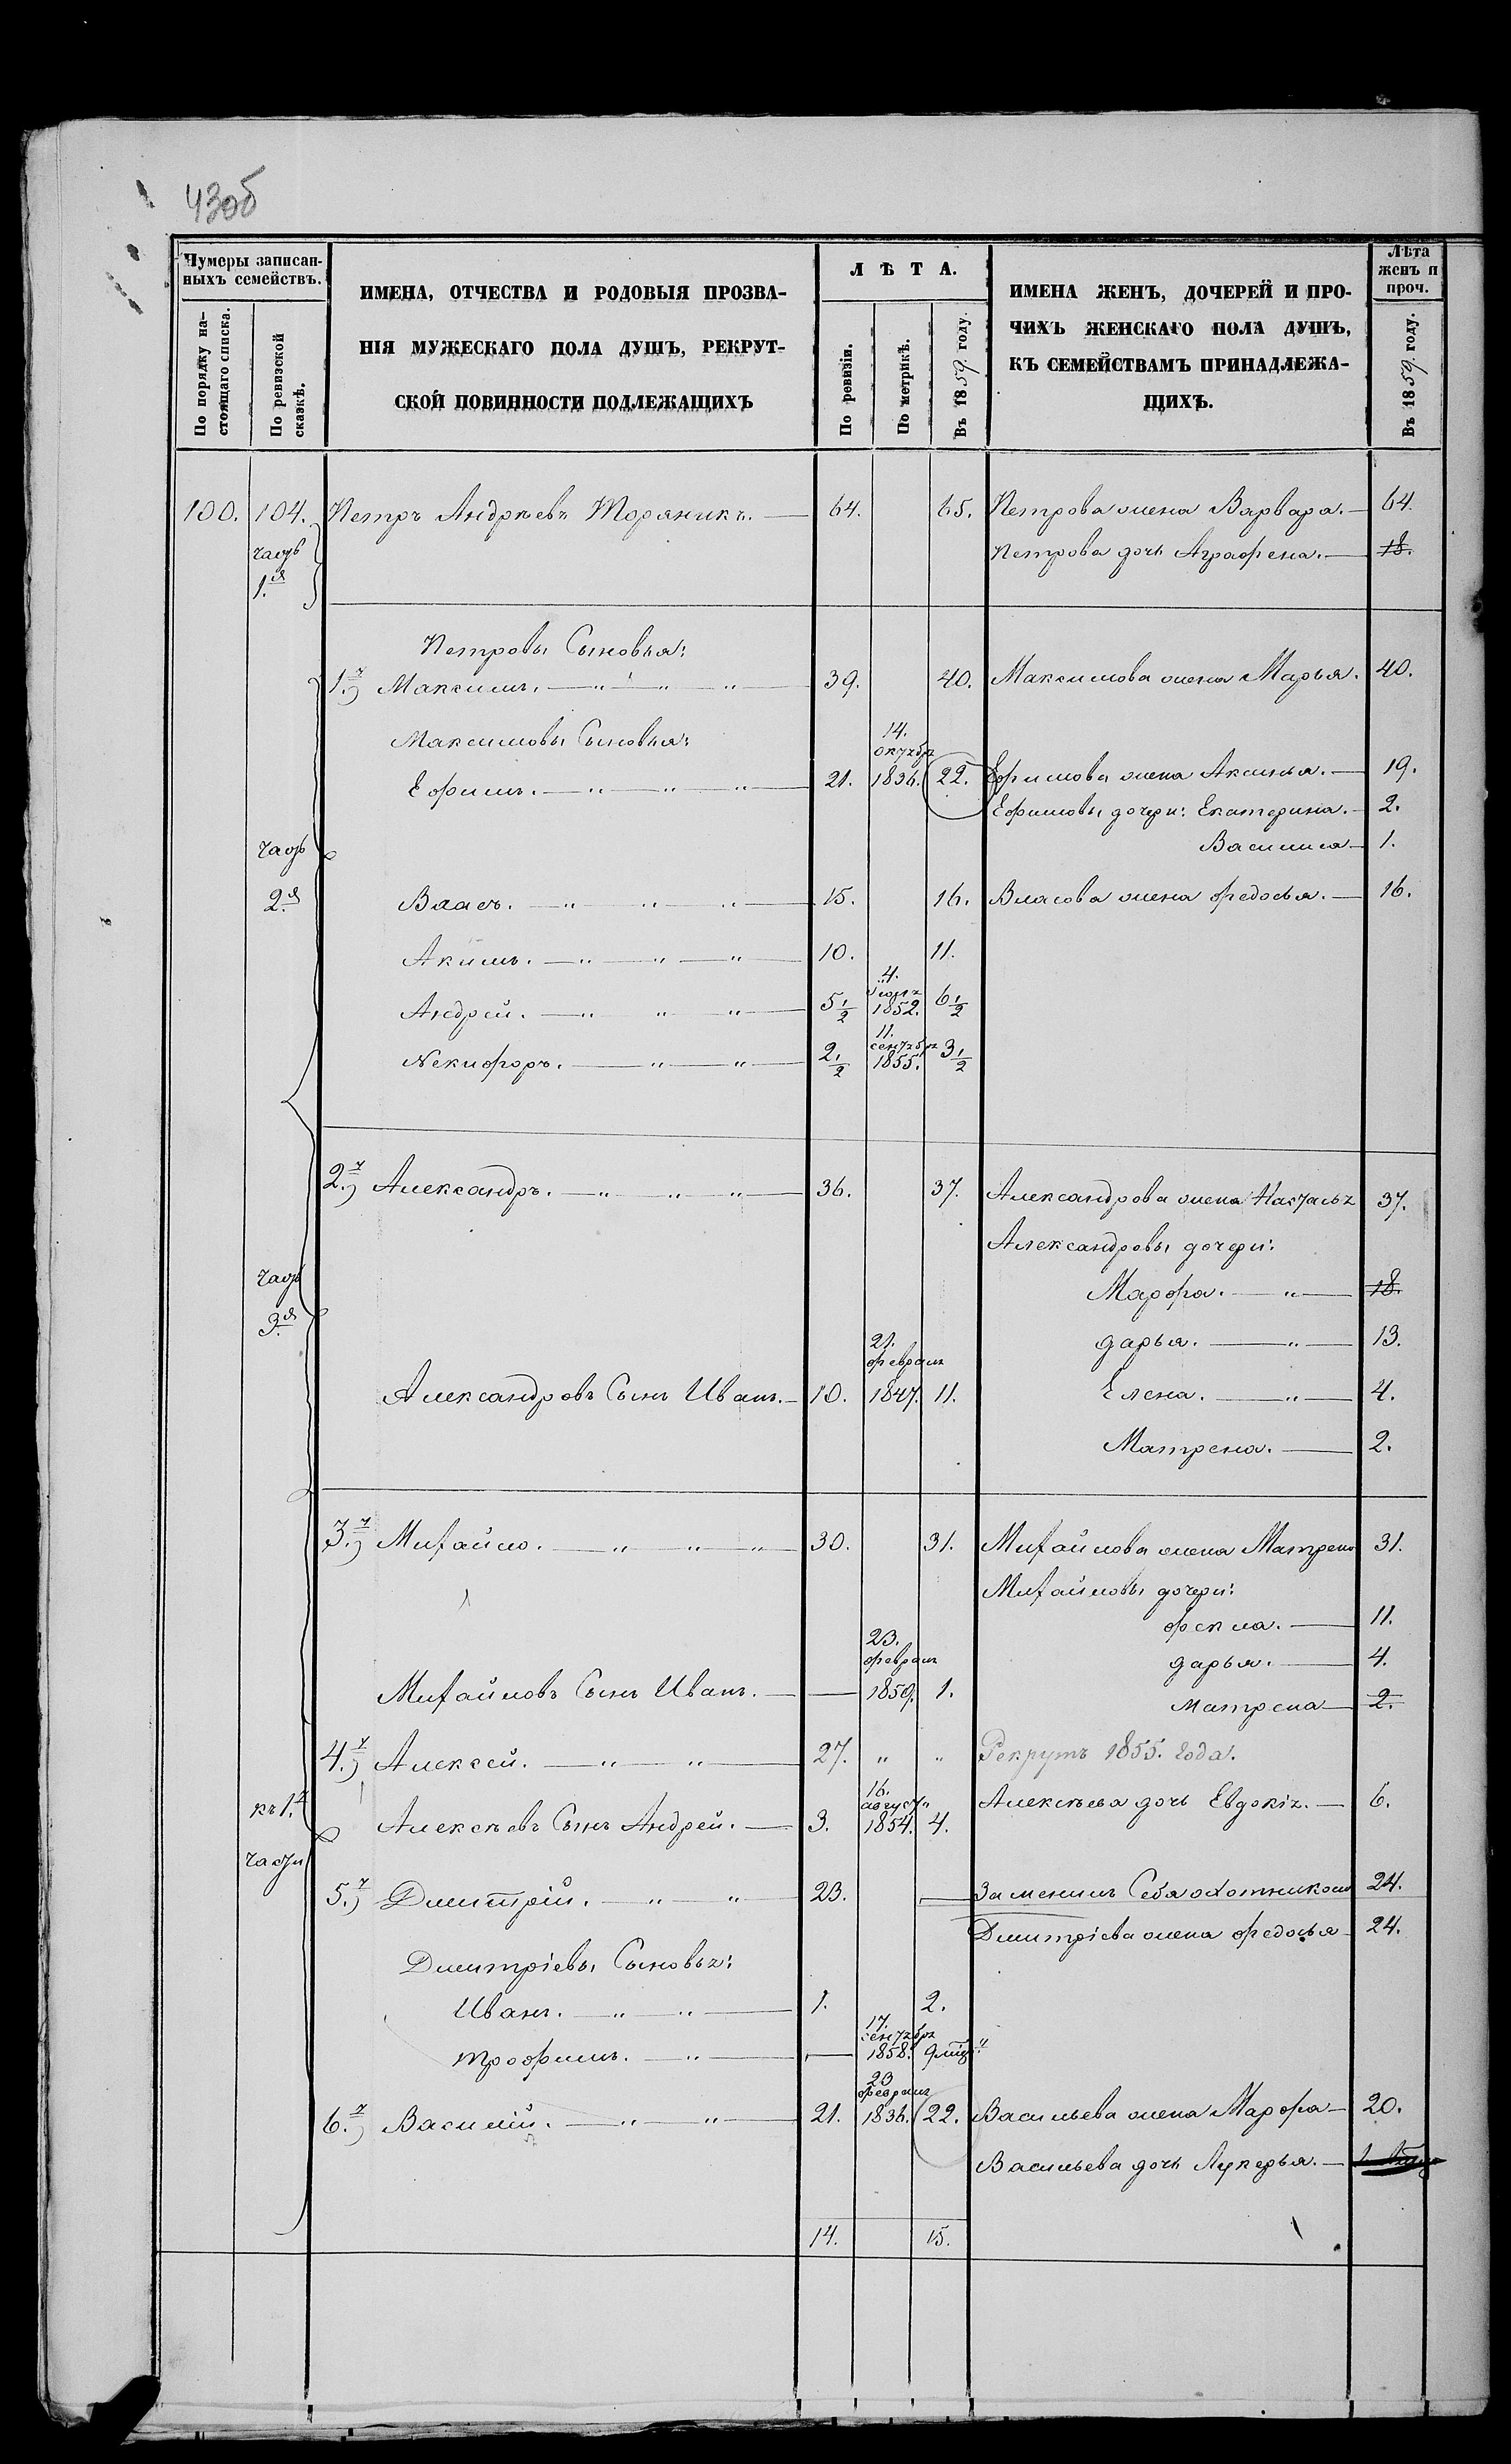 43об
Нумеры записан-
ныхъ семействъ.
По порядку на-
стоящаго списка.
По ревизской
сказкѣ.
ИМЕНА, ОТЧЕСТВА И РОДОВЫЯ ПРОЗВА-
НІЯ МУЖЕСКАГО ПОЛА ДУШЪ, РЕКРУТ-
СКОЙ ПОВИННОСТИ ПОДЛЕЖАЩИХЪ
ЛѢТА.
По ревизіи.
По метрикѣ.
Въ 1859 году.
ИМЕНА ЖЕНЪ, ДОЧЕРЕЙ И ПРО-
ЧИХЪ ЖЕНСКАГО ПОЛА ДУШЪ,
КЪ СЕМЕЙСТВАМЪ ПРИНАДЛЕЖА-
ЩИХЪ.
Лѣта
женъ и
проч.
Въ 1859 году.
100. 104. Петръ Андрѣевъ Моряникъ. 64. 65. Петрова жена Варвара. 64.
часть Петрова дочь Аграфена. 18.
1.я
Петровы Сыновья:
1.й) Максимъ. 39. 40. Максимова жена Марья. 40.
Максимовы Сыновья: 14.
октябр
Ефимъ. 21. 1836. 22. Ефимова жена Аксинья. 19.
Ефимовы дочери: Екатерина. 2.
часть Василиса 1.
2.я Власъ. 15. 16. Власова жена федосья. 16.
Акимъ. 10. 11.
4.
Андрей. 5 1/2 1852. 6 1/2
11.
сентябр
Некифоръ. 2 1/2 1855. 3 1/2
2.й) Александръ. 36. 37. Александрова жена Настасья 37.
Александровы дочери:
часть Марфа. 18.
3.я
21. дарья. 13.
феврал
Александровъ Сынъ Иванъ. 10. 1847. 11. Елена. 4.
Матрена. 2.
3.й) Михайло. 30. 31. Михайлова жена Матрена 31.
Михайловы дочери:
фекла. 11.
23.
феврал дарья. 4.
Михайловъ Сынъ Иванъ. 1859. 1. матрена 2.
4.й) Алексей. 27. " " Рекрутъ 1855. года.
16.
къ 1.й август Алексѣева дочь Евдокія. 6.
Алексѣевъ Сынъ Андрей. 3. 1854. 4.
части
5.й) Дмитрій. 23. Заменилъ Себя охотникомъ 24.
Дмитріева жена федосья 24.
Дмитріевы Сыновья:
Иванъ. 1. 2.
17.
сентябр
трофимъ. 1858.
23
феврал
6.й) Василій. 21. 1836. 22. Васильева жена Марфа 20.
Васильева дочь Лукерья.
14. 15.